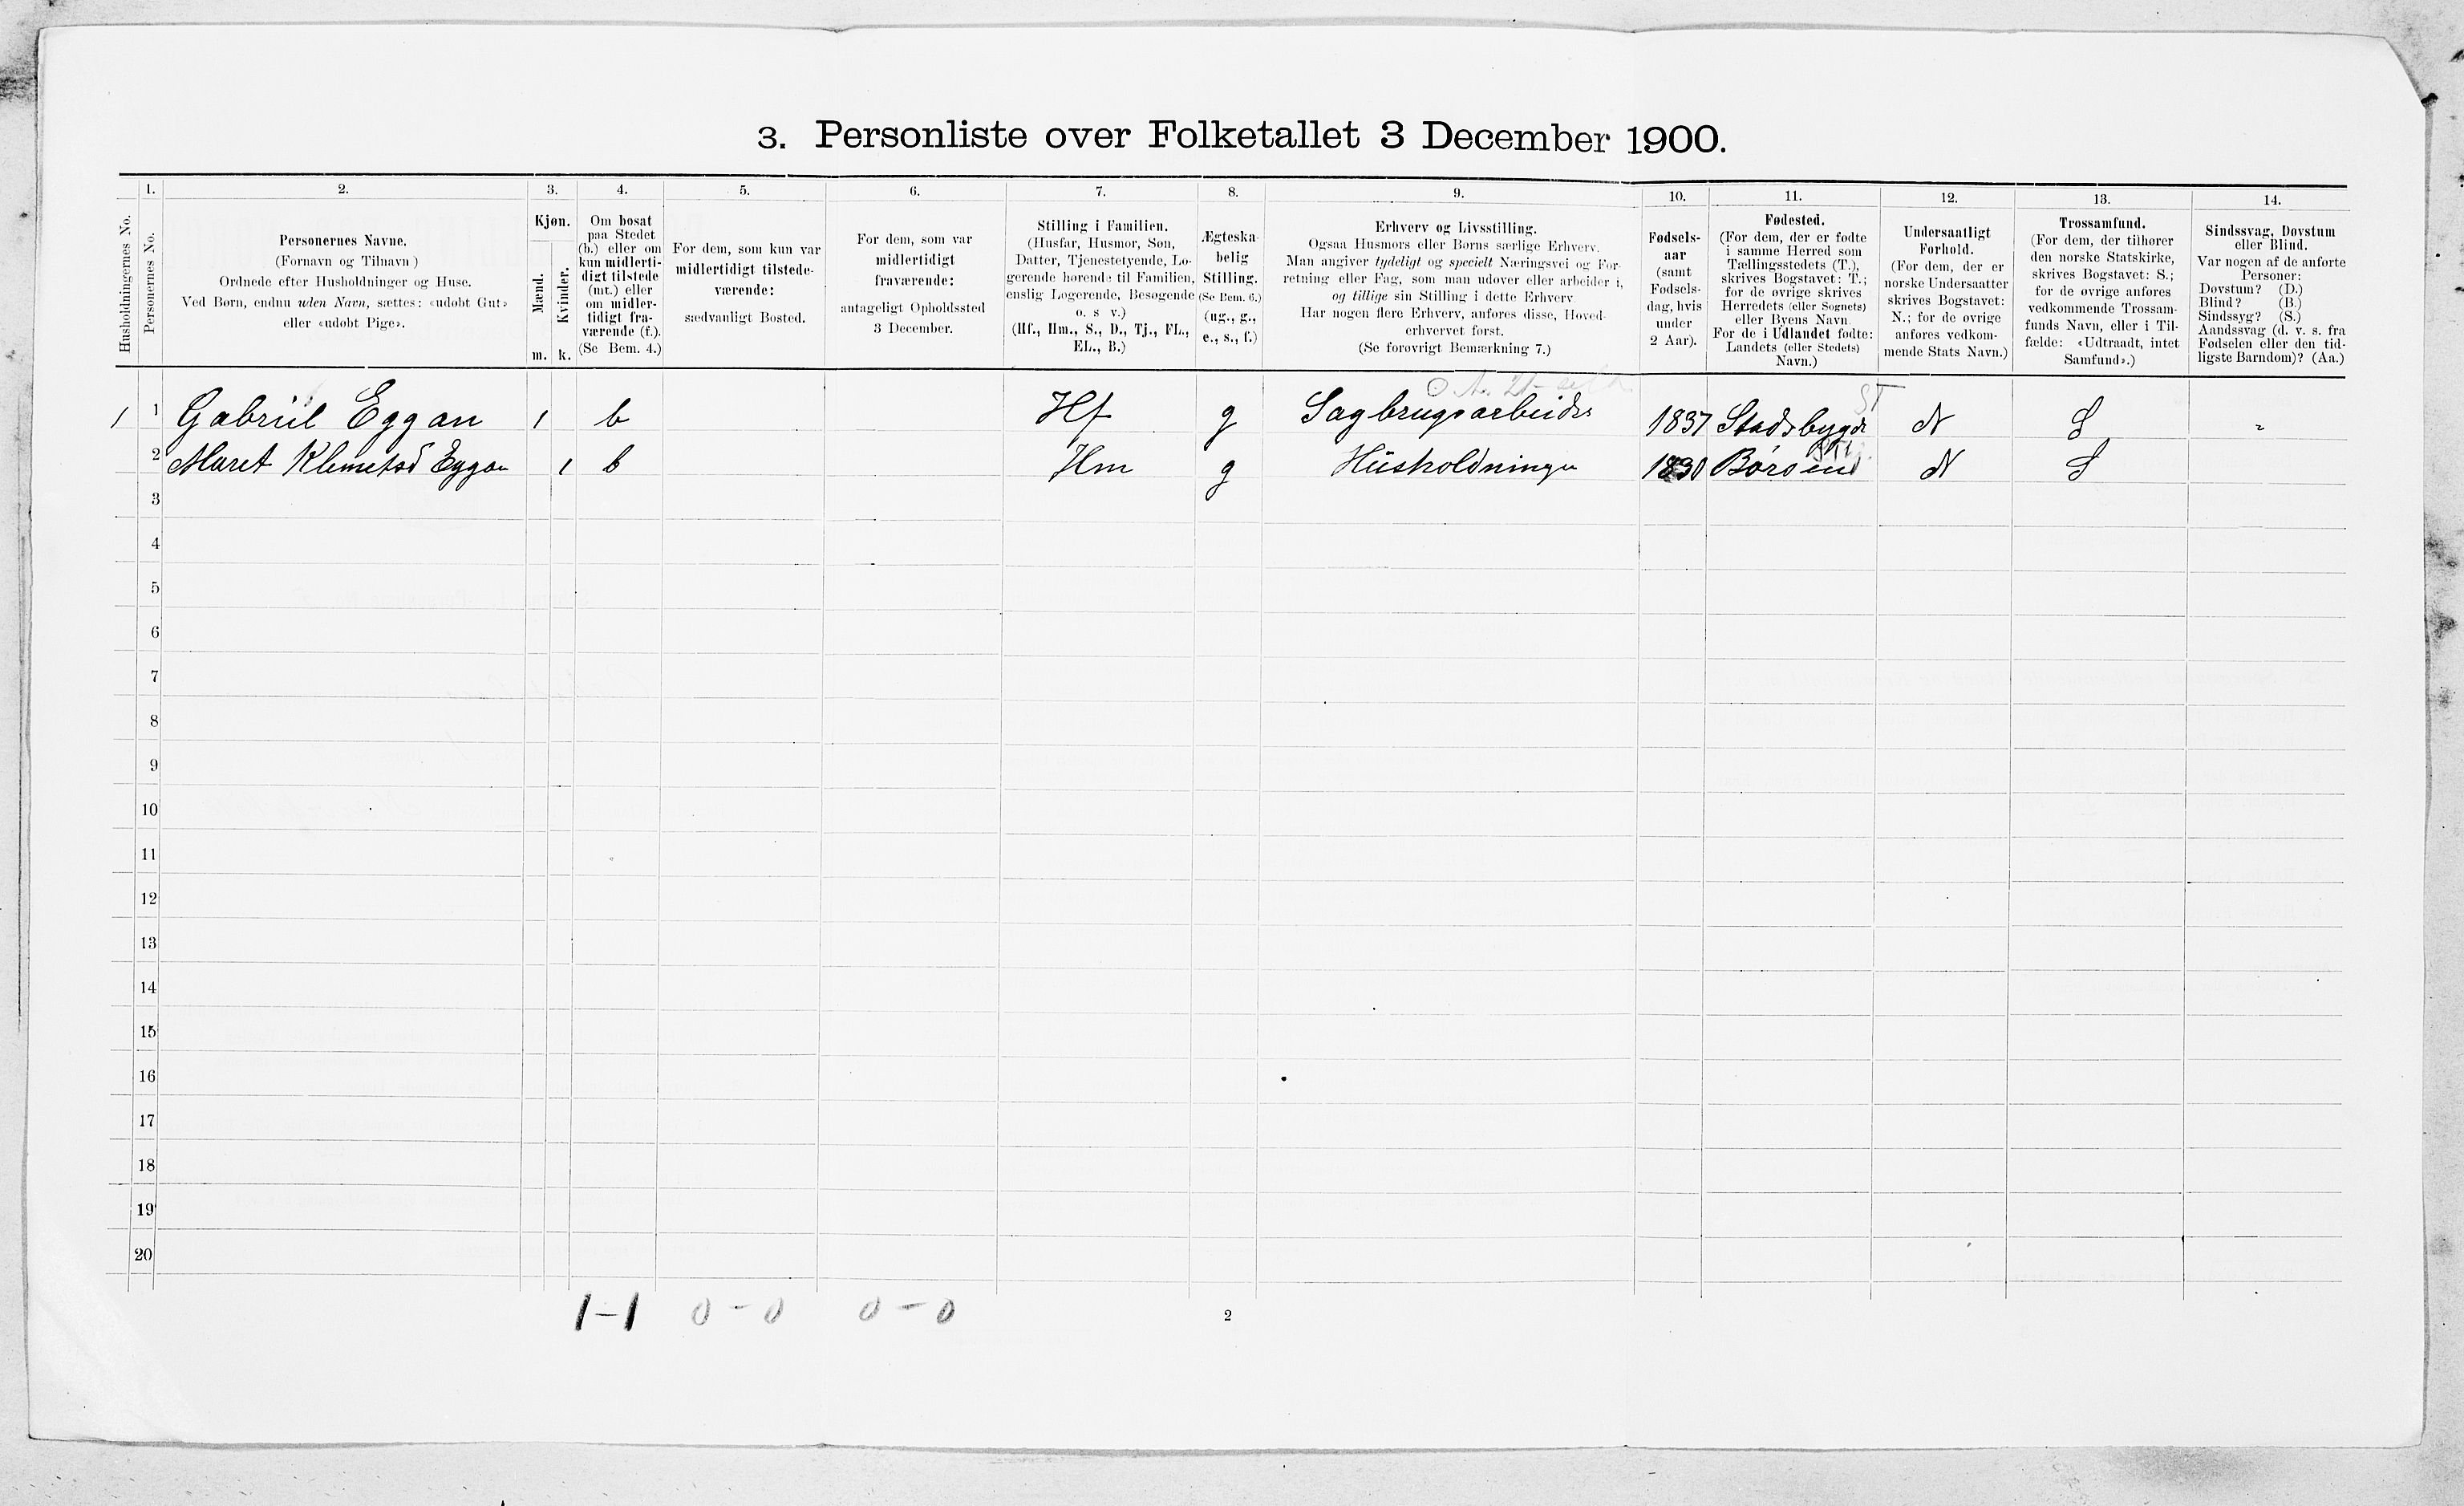 3. Personliste over Folketallet 3 December 1900.
Husholdningernes No.
1.
Personernes No.
2.
Personernes Navne.
(Fornavn og Tilnavn)
Ordnede efter Husholdninger og Huse.
Ved Børn, endnu uden Navn, sættes: «udøbt Gut»
eller «udøbt Pige».
3.
Kjøn.
Mænd.
Kvinder.
m. k.
4.
Om bosat
paa Stedet
(b.) eller om
kun midlerti-
digt tilstede
(mt.) eller
om midler-
tidigt fra-
værende (f.).
(Se Bem. 4.)
5.
For dem, som kun var
midlertidigt tilstede-
værende:
sædvanligt Bosted.
6.
For dem, som var
midlertidigt
fraværende:
antageligt Opholdssted
3 December.
7.
Stilling i Familien.
(Husfar, Husmor, Søn,
Datter, Tjenestetyende, Lo-
gerende hørende til Familien,
enslig Logerende, Besøgende
o. s v.)
(Hf., Hm., S., D., Tj., FL.,
EL., B.)
8.
Ægteska-
belig
Stilling.
(Se Bem. 6.)
(ug., g.,
e., s., f.)
9.
Erhverv og Livsstilling.
Ogsaa Husmors eller Børns særlige Erhverv.
Man angiver tydeligt og specielt Næringsvei og For-
retning eller Fag, som man udøver eller arbeider i,
og tillige sin Stilling i dette Erhverv.
Har nogen flere Erhverv, anføres disse, Hoved-
erhvervet først.
(Se forøvrigt Bemærkning 7.)
10.
Fødsels-
aar
(samt
Fødsels-
dag, hvis
under
2 Aar).
11.
Fødested.
(For dem, der er fødte
i samme Herred som
Tællingsstedets (T.),
skrives Bogstavet: T.;
for de øvrige skrives
Herredets (eller Sognets)
eller Byens Navn.
For de i Udlandet fødte:
Landets (eller Stedets)
Navn.)
12.
Undersaatligt
Forhold.
(For dem, der er
norske Undersaatter
skrives Bogstavet:
N.; for de øvrige
anføres vedkom-
mende Stats Navn.)
13.
Trossamfund.
(For dem, der tilhører
den norske Statskirke,
skrives Bogstavet: S.;
for de øvrige anføres
vedkommende Trossam-
funds Navn, eller i Til-
fælde: «Udtraadt, intet
Samfund».)
14.
Sindssvag, Døvstum
eller Blind.
Var nogen af de anførte
Personer:
Døvstum? (D.)
Blind? (B.)
Sindssyg? (S.)
Aandssvag (d. v. s. fra
Fødselen eller den tid-
ligste Barndom)? (Aa.)
ST
1 1 Gabriil Eggan 1 b Hf g Sagbrugsarbeider 1837 Stadsbygd N S -
2 Maret Klemetsd Eggan 1 b Hm g Husholdningen 1830 Børsend N S
3
4
5
6
7
8
9
10
11
12
13
14
15
16
17
18
19
20
1-1 0-0 0-0
2